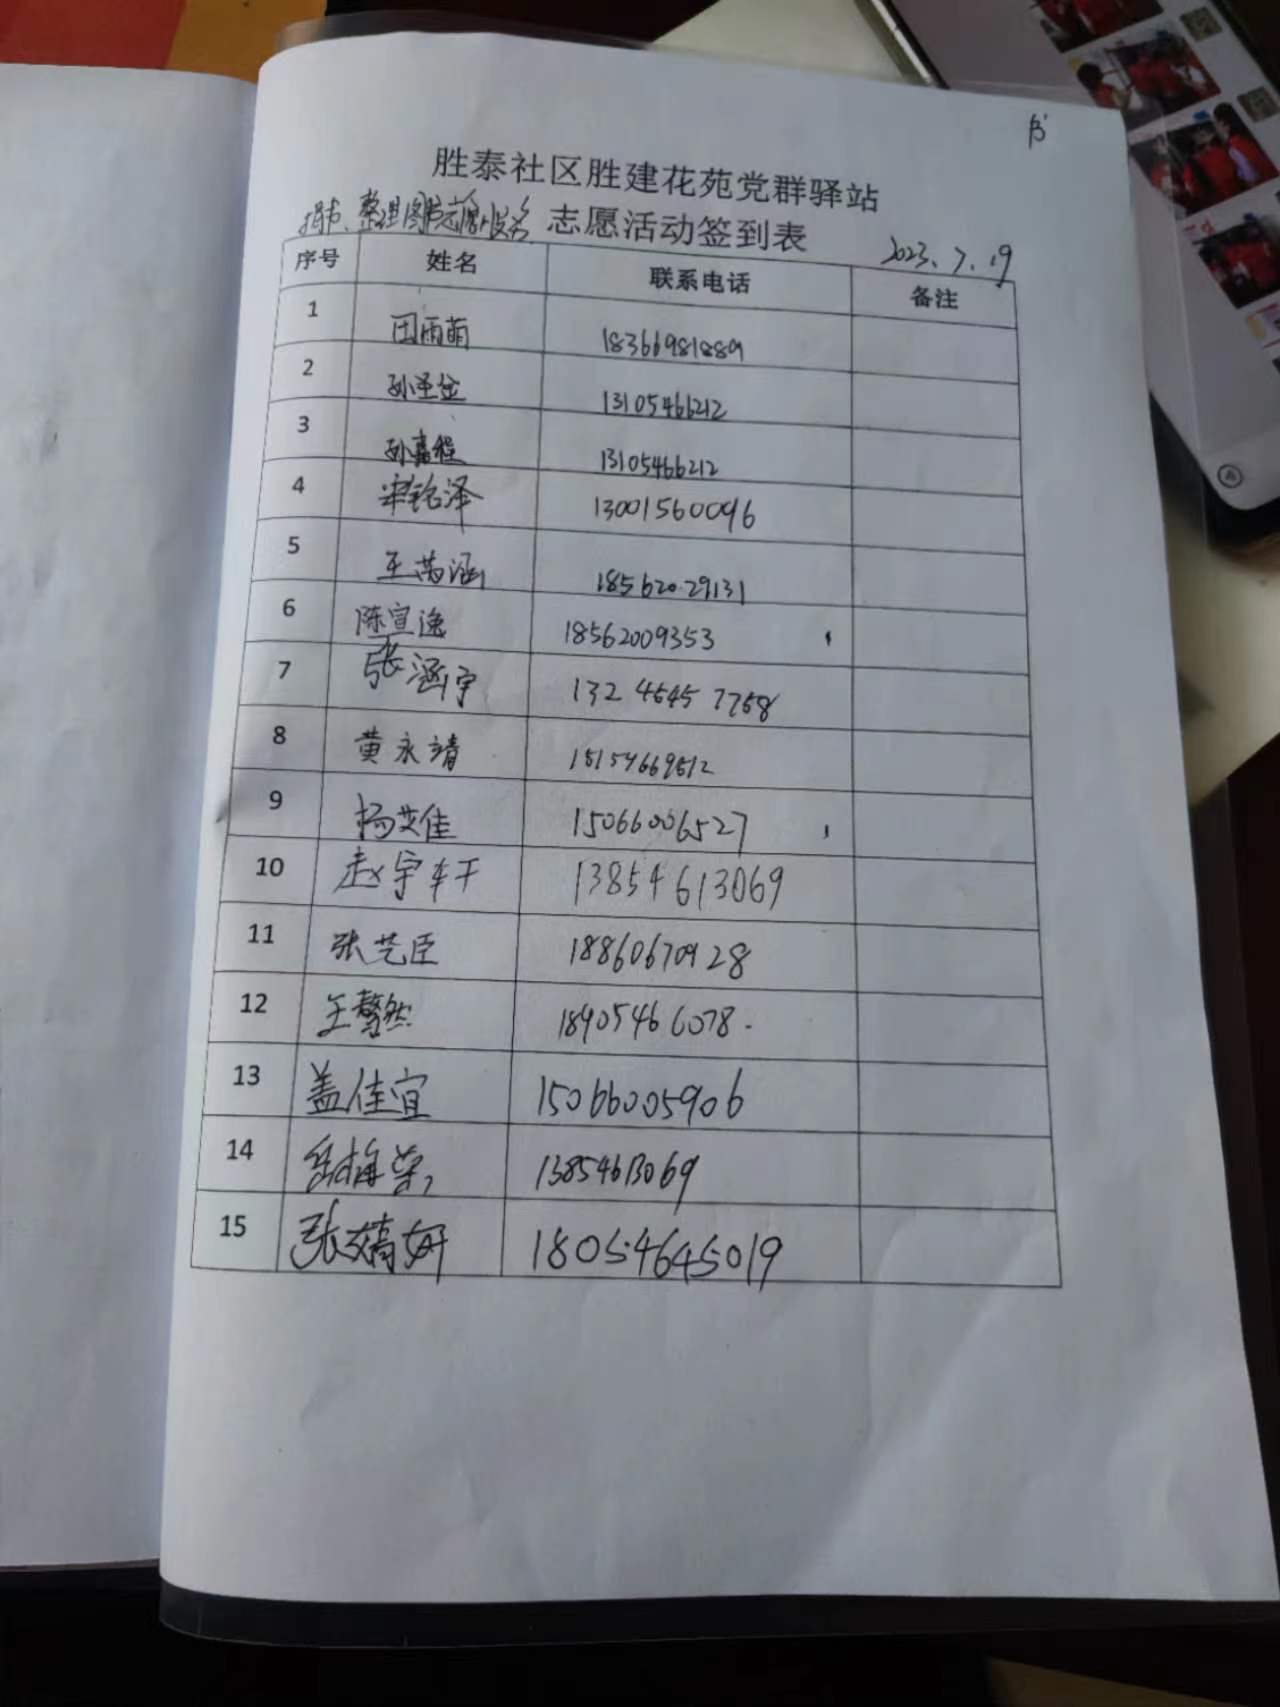 胜泰社区胜建花苑党群驿站
捐书、整理图书志愿服务 志愿活动签到表 2023.7.19
序号 姓名 联系电话 备注
1 田雨萌 18366981889
2 孙圣益 13105466212
3 孙嘉程 13105466212
4 宋铭泽 13001560096
5 王芮涵 18562029131
6 陈宣逸 18562009353
7 张涵宇 132 4645 7758
8 黄永靖 15154669512
9 杨艾佳 15066006527
10 赵宇轩 13854613069
11 张艺臣 18860670928
12 王馨然 18905466078.
13 盖佳宜 15066005906
14 岳梅荣 13854613069
15 张婧妍 18054645019